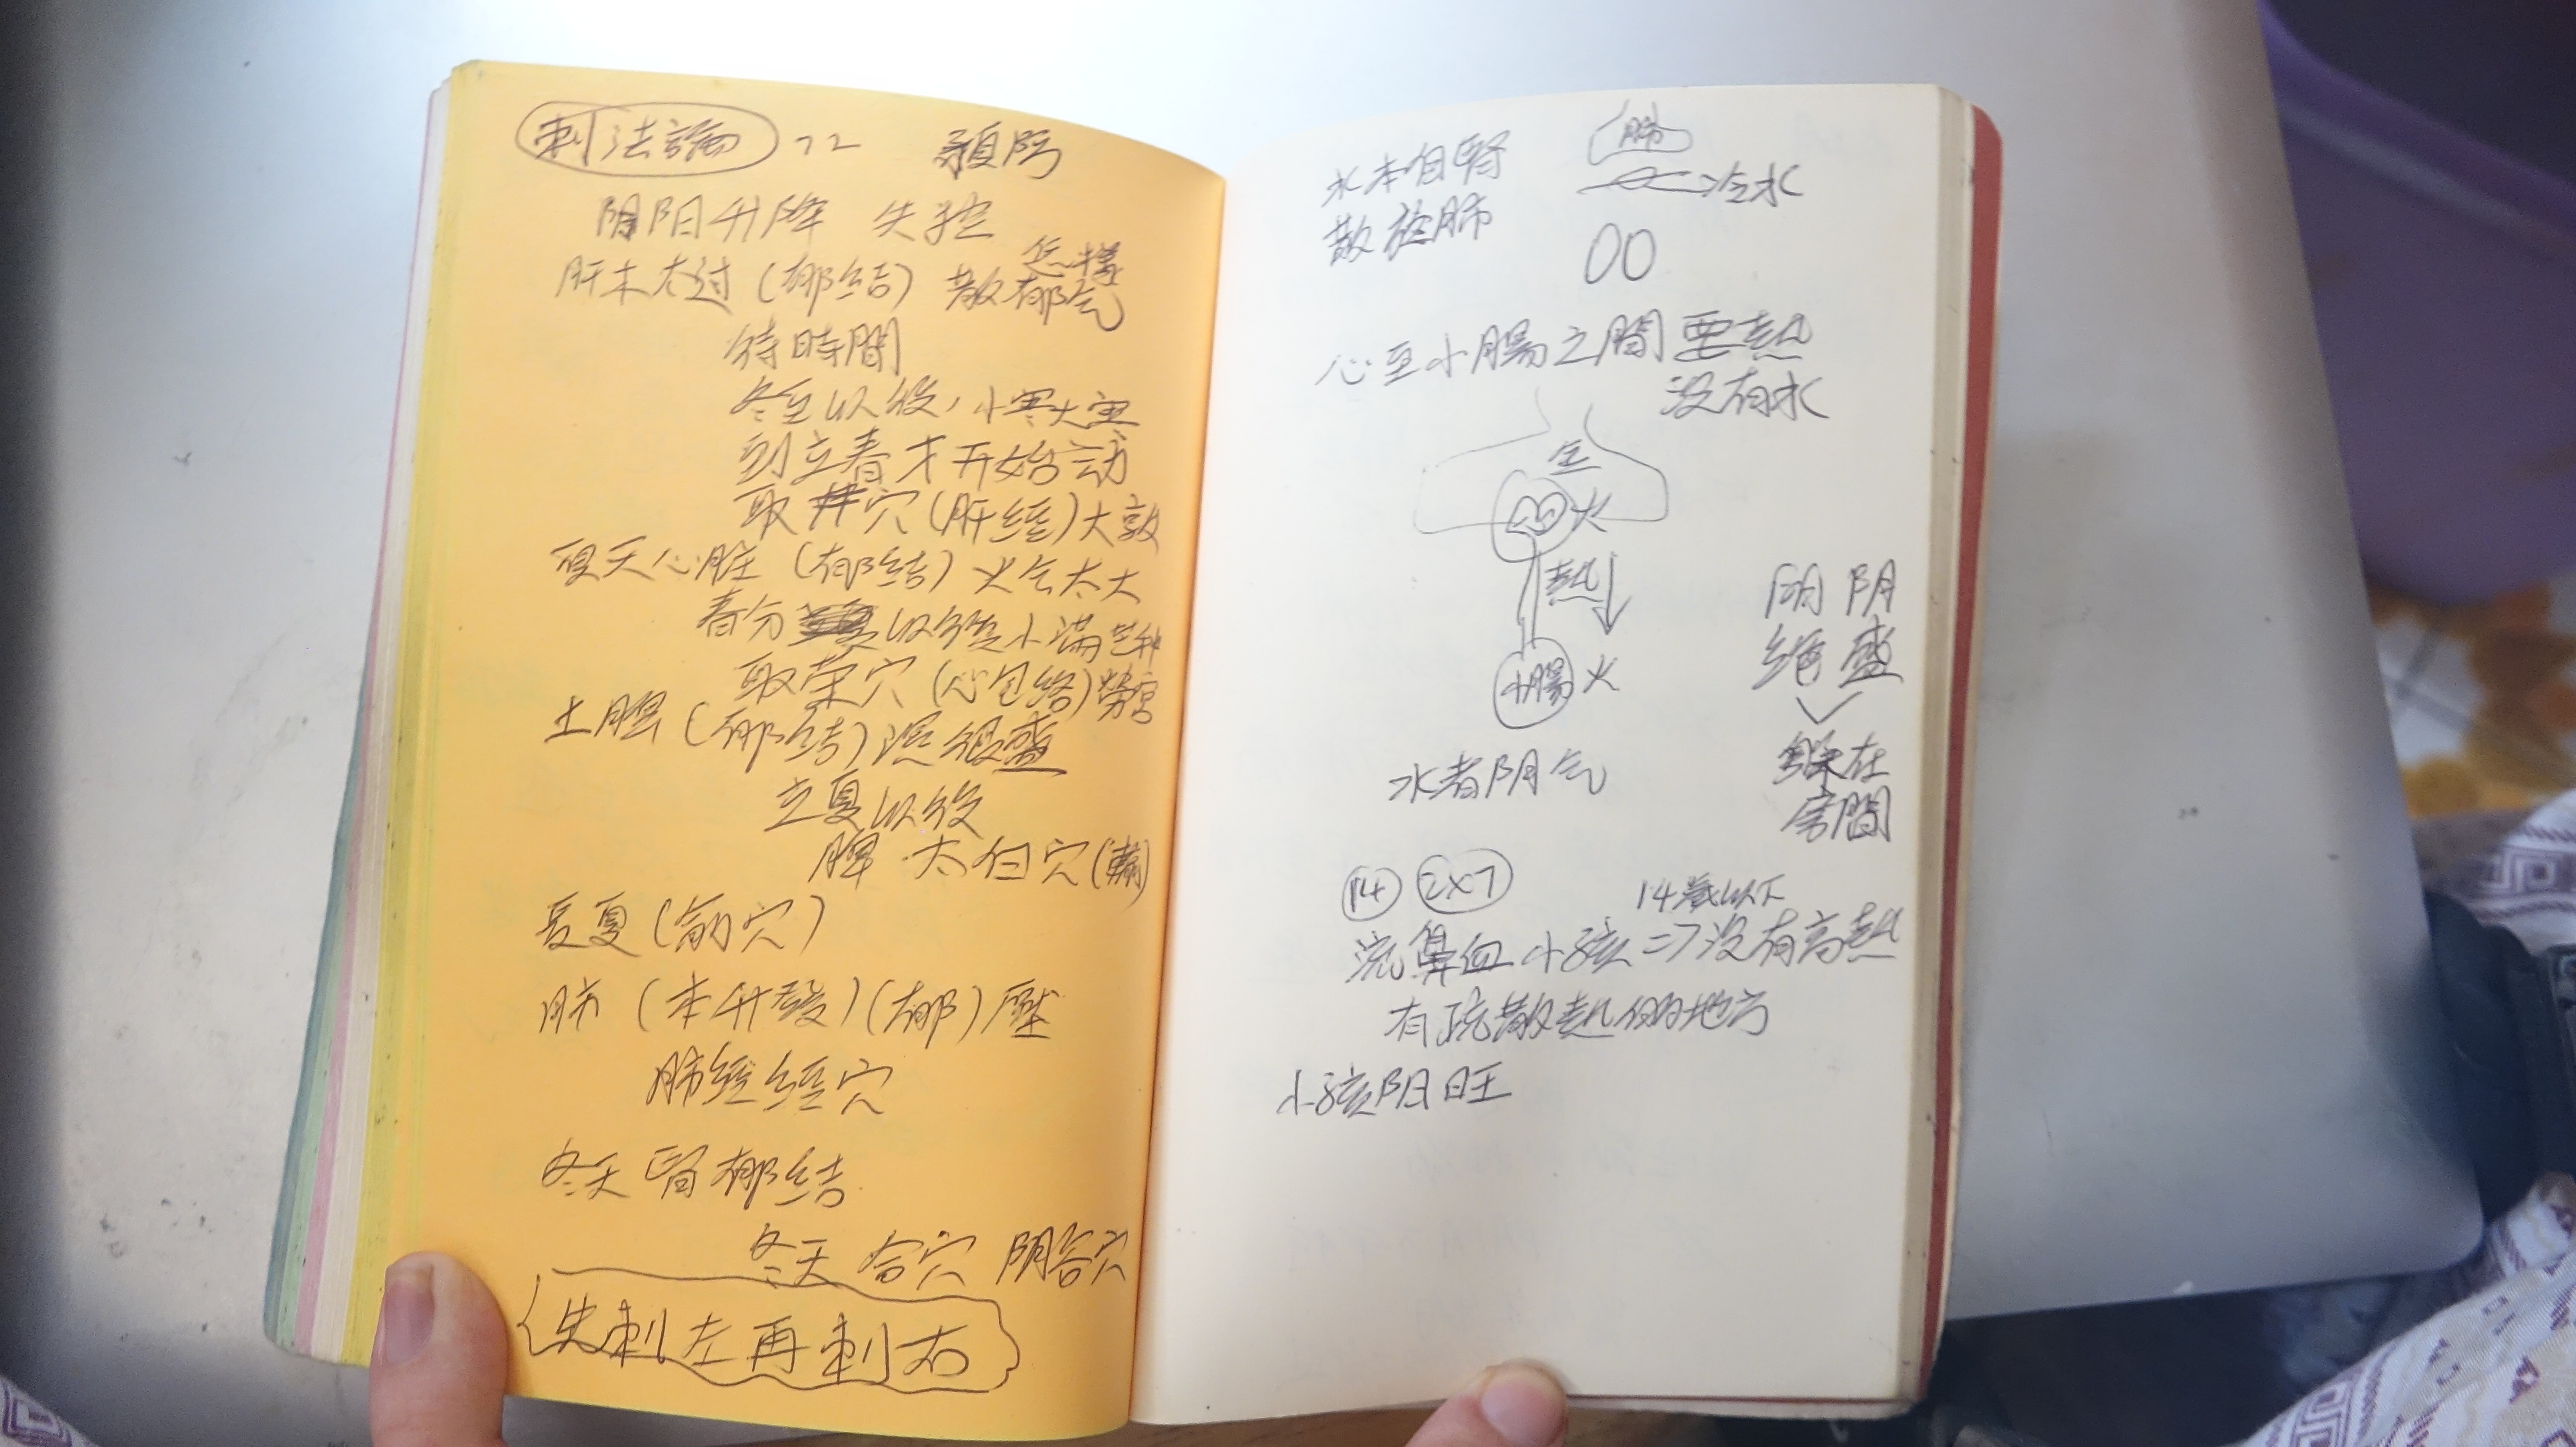 刺法論 72 預防
阴阳升降 失控
肝木太过 (郁結) 怎樣散郁气
待時間
冬至以後,小寒大寒
到立春才开始动
取井穴 (肝經) 大敦
夏天心脏 (郁結) 火气太大
春分 以後小满芒种
取荣穴 (心包络) 劳宫
土脾 (郁結) 湿很盛
立夏以後
脾 太白穴 (輸)
長夏 (俞穴)
肺 (本升發) (郁) 壓
肺經經穴
冬天 腎郁結
冬天 合穴 阴谷穴
先刺左再刺右
肺
水本自腎
散於肺
冷水
心至小腸之間要熱
没有水
金
心 火
熱
小腸 火
阴 阴
绝 盛
躲在
房間
水者阴气
14 2x7
14歲以下
流鼻血 小孩 二7没有高熱
有疏散熱的地方
小孩阴旺